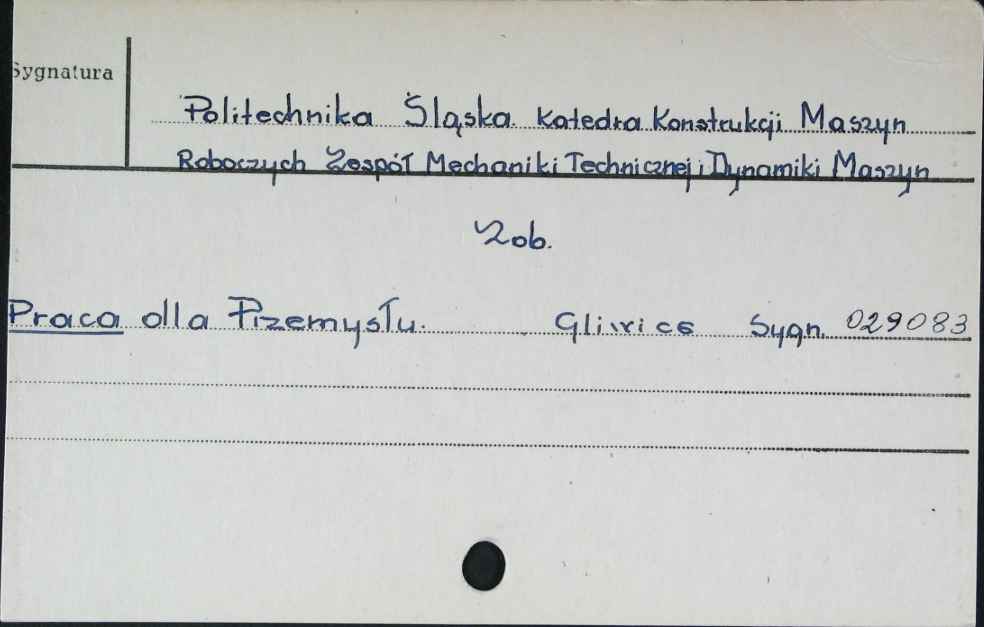 Sygnatura
Politechnika Śląska Katedra Konstrukcji Maszyn
Roboczych Zespół Mechaniki Technicznej i Dynamiki Maszyn
Zob.
Praca dla Przemysłu. Gliwice Sygn. 029083